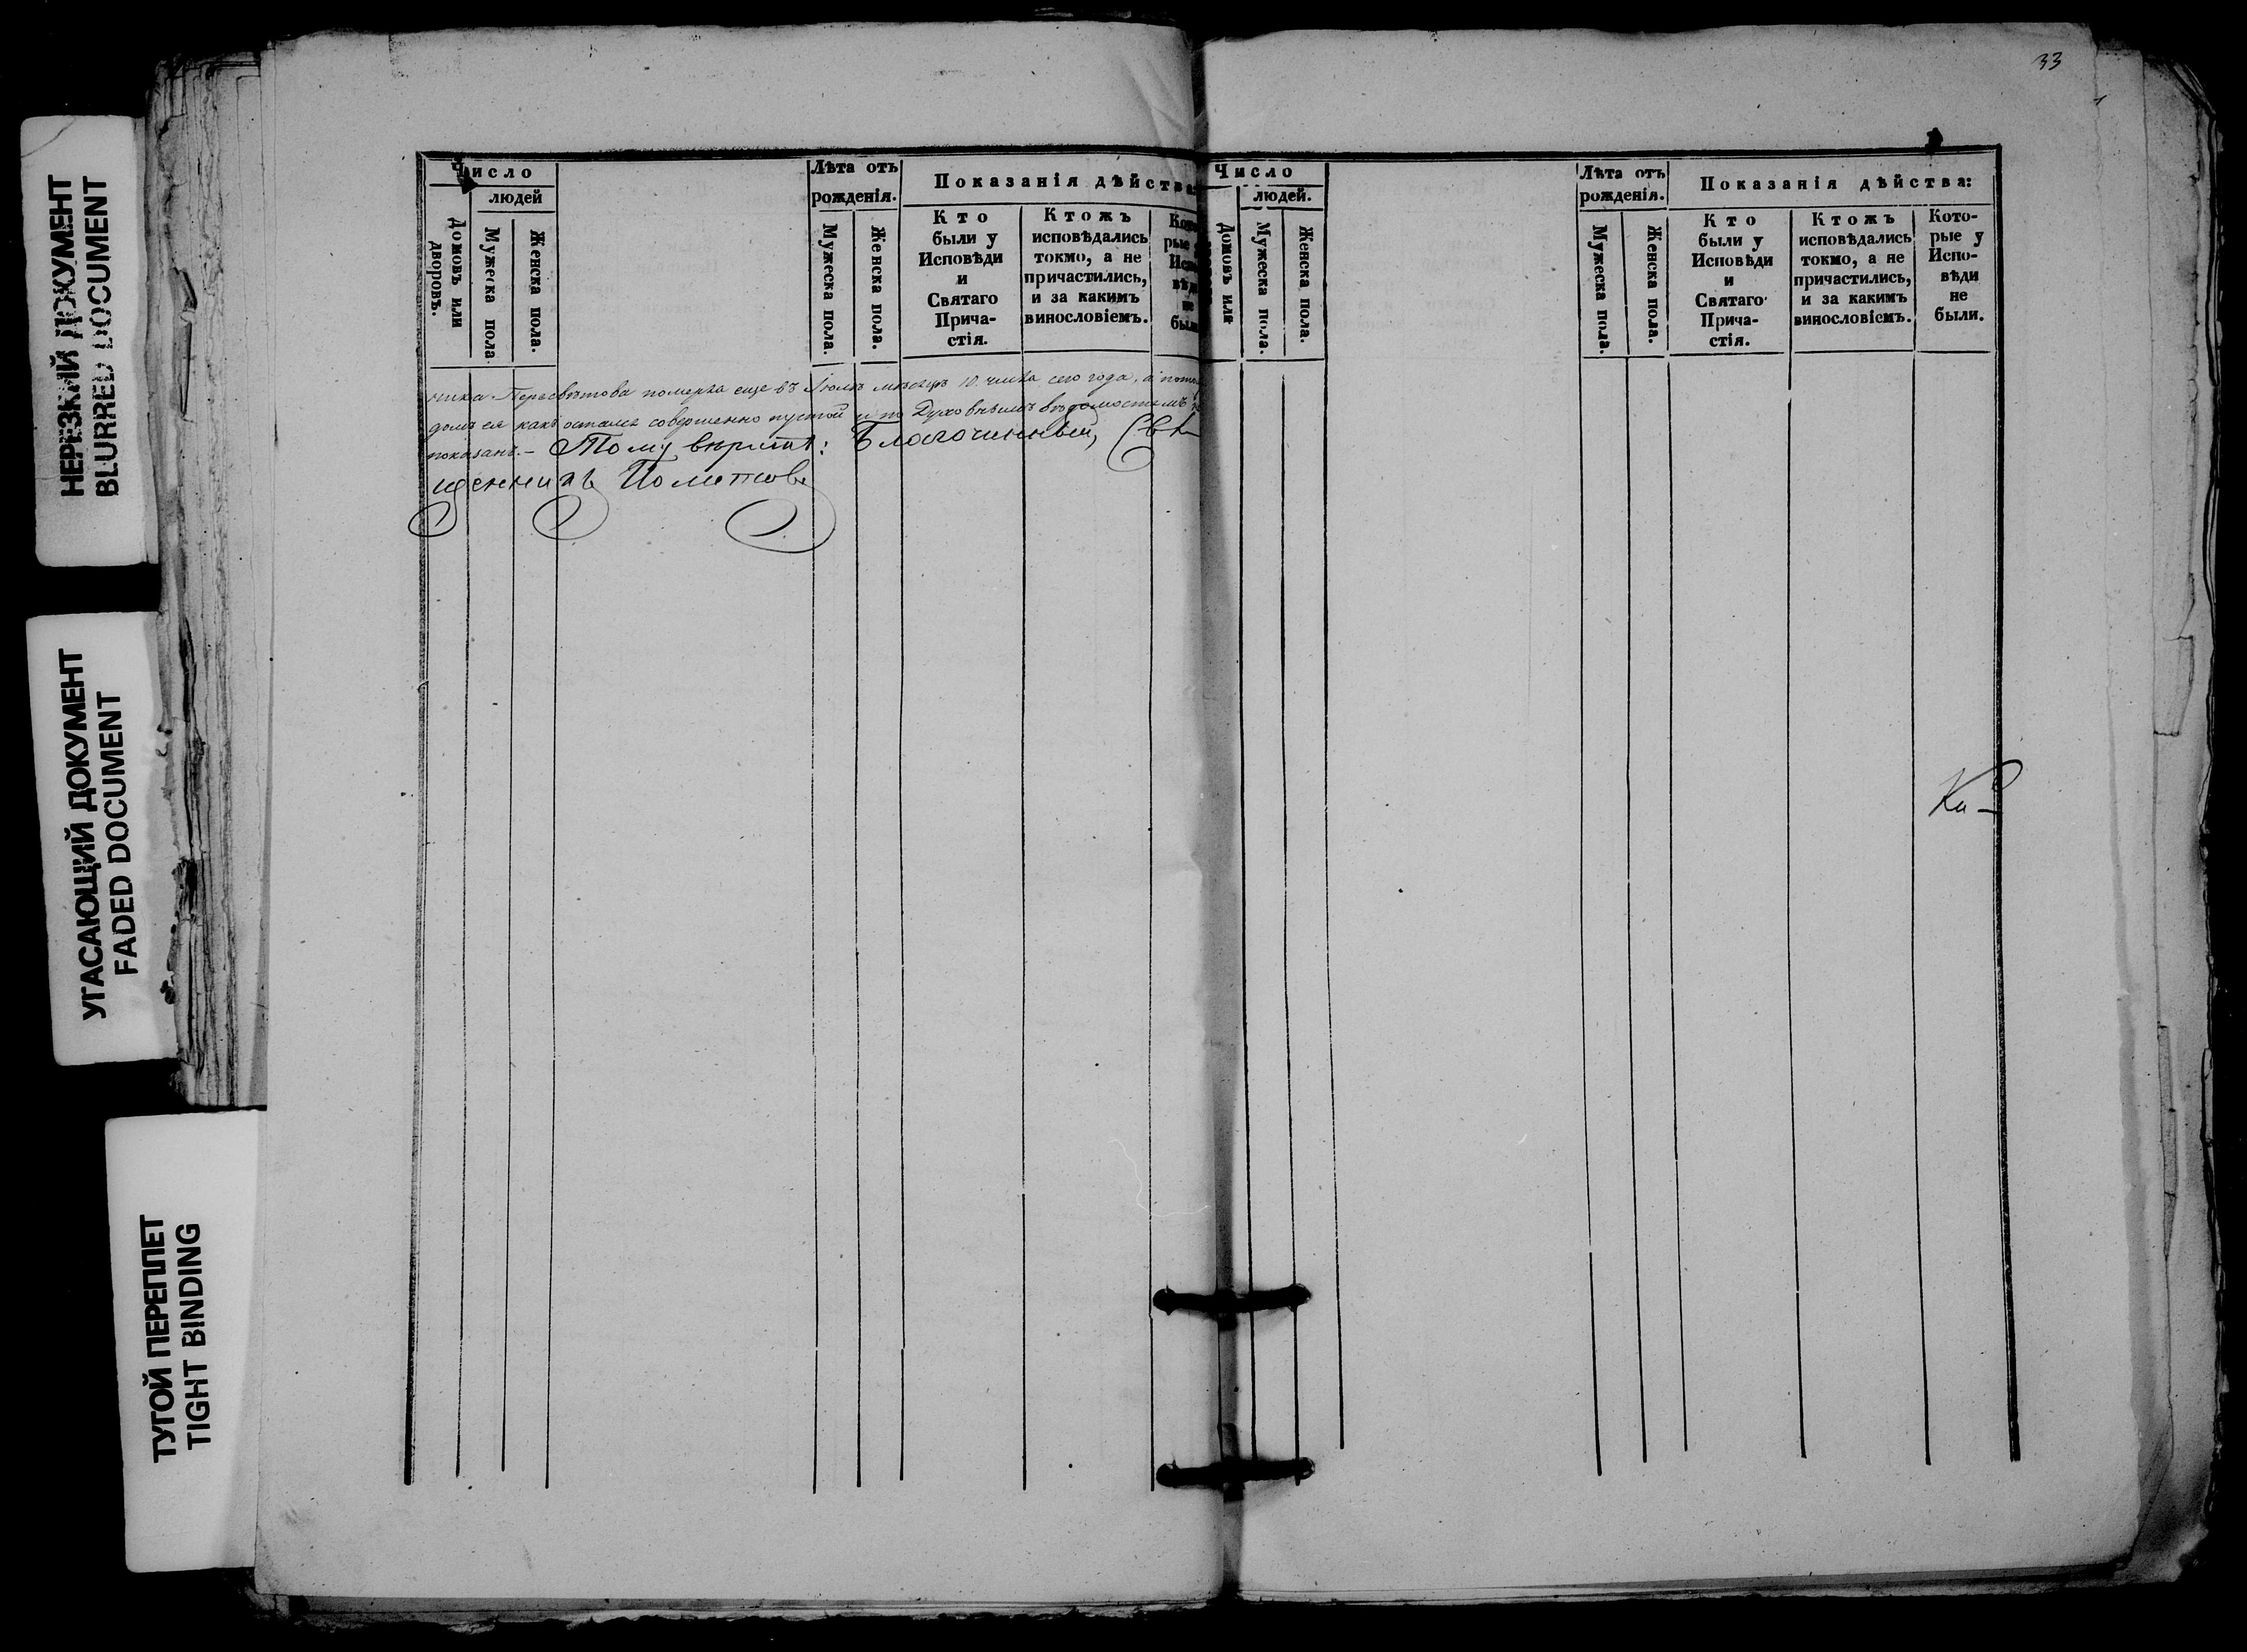 НЕРЕЗКИЙ ДОКУМЕНТ
BLURRED DOCUMENT
УГАСАЮЩИЙ ДОКУМЕНТ
FADED DOCUMENT
ТУГОЙ ПЕРЕПЛЕТ
TIGHT BINDING
Число
людей
Домовъ или дворовъ.
Мужеска пола.
Женска пола.
Лѣта отъ
рожденія.
Мужеска пола.
Женска пола.
Показанія дѣйства:
Кто
были у
Исповѣди
и
Святаго
Прича-
стія.
Ктожъ
исповѣдались
токмо, а не
причастились,
и за какимъ
винословіемъ.
чика Пересвѣтова померла еще въ Іюлѣ мѣсяцѣ 10. числа сего года, а
домъ ея какъ остался совершенно пустой и по Духовнымъ вѣдомостямъ
показанъ. – Тому вѣритъ: Благочинный, Свя-
щенникъ
33
Число
людей.
Домовъ или
Мужеска пола.
Женска пола.
Лѣта отъ
рожденія.
Мужеска пола.
Женска пола.
Показанія дѣйства:
Кто
были у
Исповѣди
и
Святаго
Прича-
стія.
Ктожъ
исповѣдались
токмо, а не
причастились,
и за какимъ
винословіемъ.
Кото-
рые у
Испо-
вѣди
не
были.